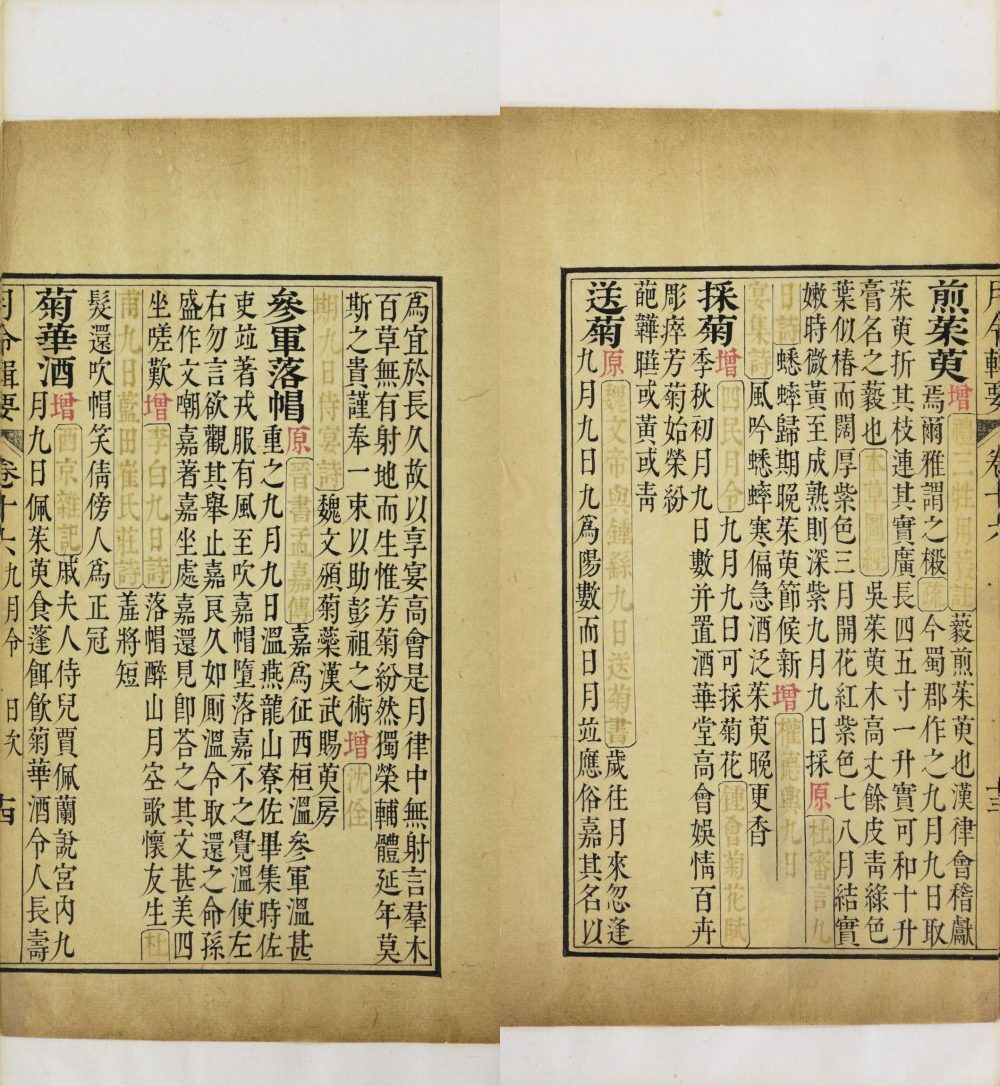 月令輯要 卷十六 十三
煎茱萸 增 禮三牲用藙註 藙煎茱萸也漢律會稽獻
焉爾雅謂之樧 疏 今蜀郡作之九月九日取
茱萸折其枝連其實廣長四五寸一升實可和十升
膏名之藙也 本草圖經 吳茱萸木高丈餘皮青綠色
葉似椿而闊厚紫色三月開花紅紫色七八月結實
嫩時微黃至成熟則深紫九月九日採 原 杜審言九
日詩 蟋蟀歸期晚茱萸節候新 增 權德輿九日
宴集詩 風吟蟋蟀寒偏急酒泛茱萸晚更香
採菊 增 四民月令 九月九日可採菊花 鍾會菊花賦
季秋初月九日數并置酒華堂高會娛情百卉
彫瘁芳菊始榮紛
葩韡曄或黃或青
送菊 原 魏文帝與鍾繇九日送菊書 歲往月來忽逢
九月九日九為陽數而日月竝應俗嘉其名以
為宜於長久故以享宴高會是月律中無射言羣木
百草無有射地而生惟芳菊紛然獨榮輔體延年莫
斯之貴謹奉一束以助彭祖之術 增 沈佺
期九日侍宴詩 魏文頒菊蘂漢武賜萸房
參軍落帽 原 晉書孟嘉傳 嘉為征西桓溫參軍溫甚
重之九月九日溫燕龍山寮佐畢集時佐
吏竝著戎服有風至吹嘉帽墮落嘉不之覺溫使左
右勿言欲觀其舉止嘉良久如厠溫令取還之命孫
盛作文嘲嘉著嘉坐處嘉還見卽荅之其文甚美四
坐嗟歎 增 李白九日詩 落帽醉山月空歌懷友生 杜
甫九日藍田崔氏莊詩 羞將短
髮還吹帽笑倩傍人為正冠
菊華酒 增 西京雜記 戚夫人侍兒賈佩蘭說宮內九
月九日佩茱萸食蓬餌飲菊華酒令人長壽
月令輯要 卷十六 九月令 日次 十四